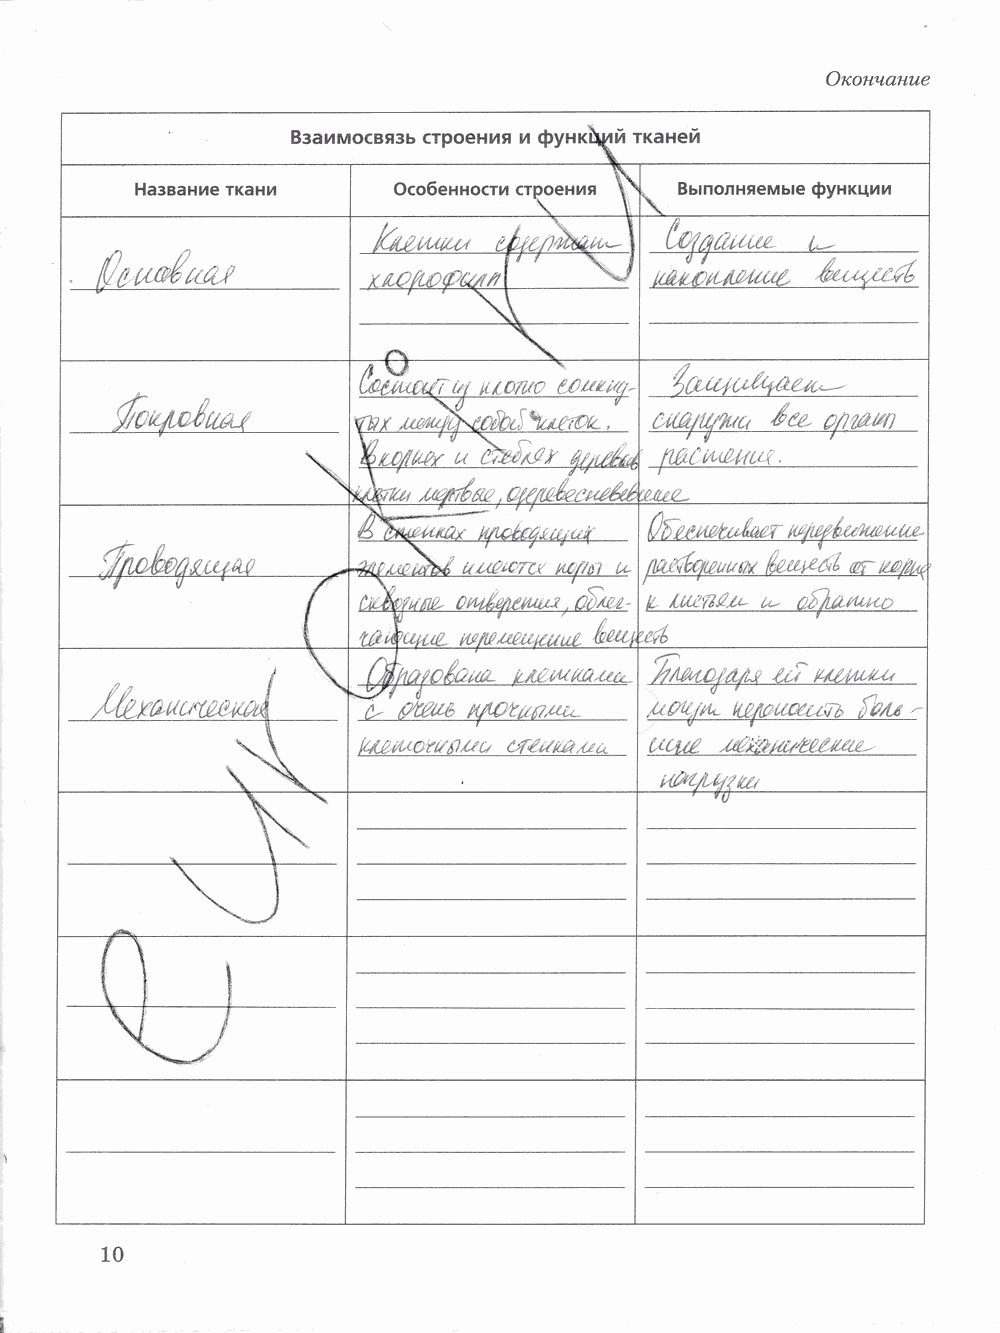 Окончание
Взаимосвязь строения и функций тканей
Название ткани
Особенности строения
Выполняемые функции
Основная
Клетки содержат
хлорофилл
Создание и
накопление веществ
Покровная
Состоит из плотно сомкну-
тых между собой клеток.
В корнях и стеблях деревьев
клетки мертвые, одревесневевшие
Защищает
снаружи все органы
растения.
Проводящая
В стенках проводящих
элементов имеются поры и
сквозные отверстия, облег-
чающие перемещение веществ
Обеспечивает передвижение
растворенных веществ от корня
к листьям и обратно
Механическая
Образована клетками
с очень прочными
клеточными стенками
Благодаря ей клетки
могут переносить боль-
шие механические
нагрузки
10